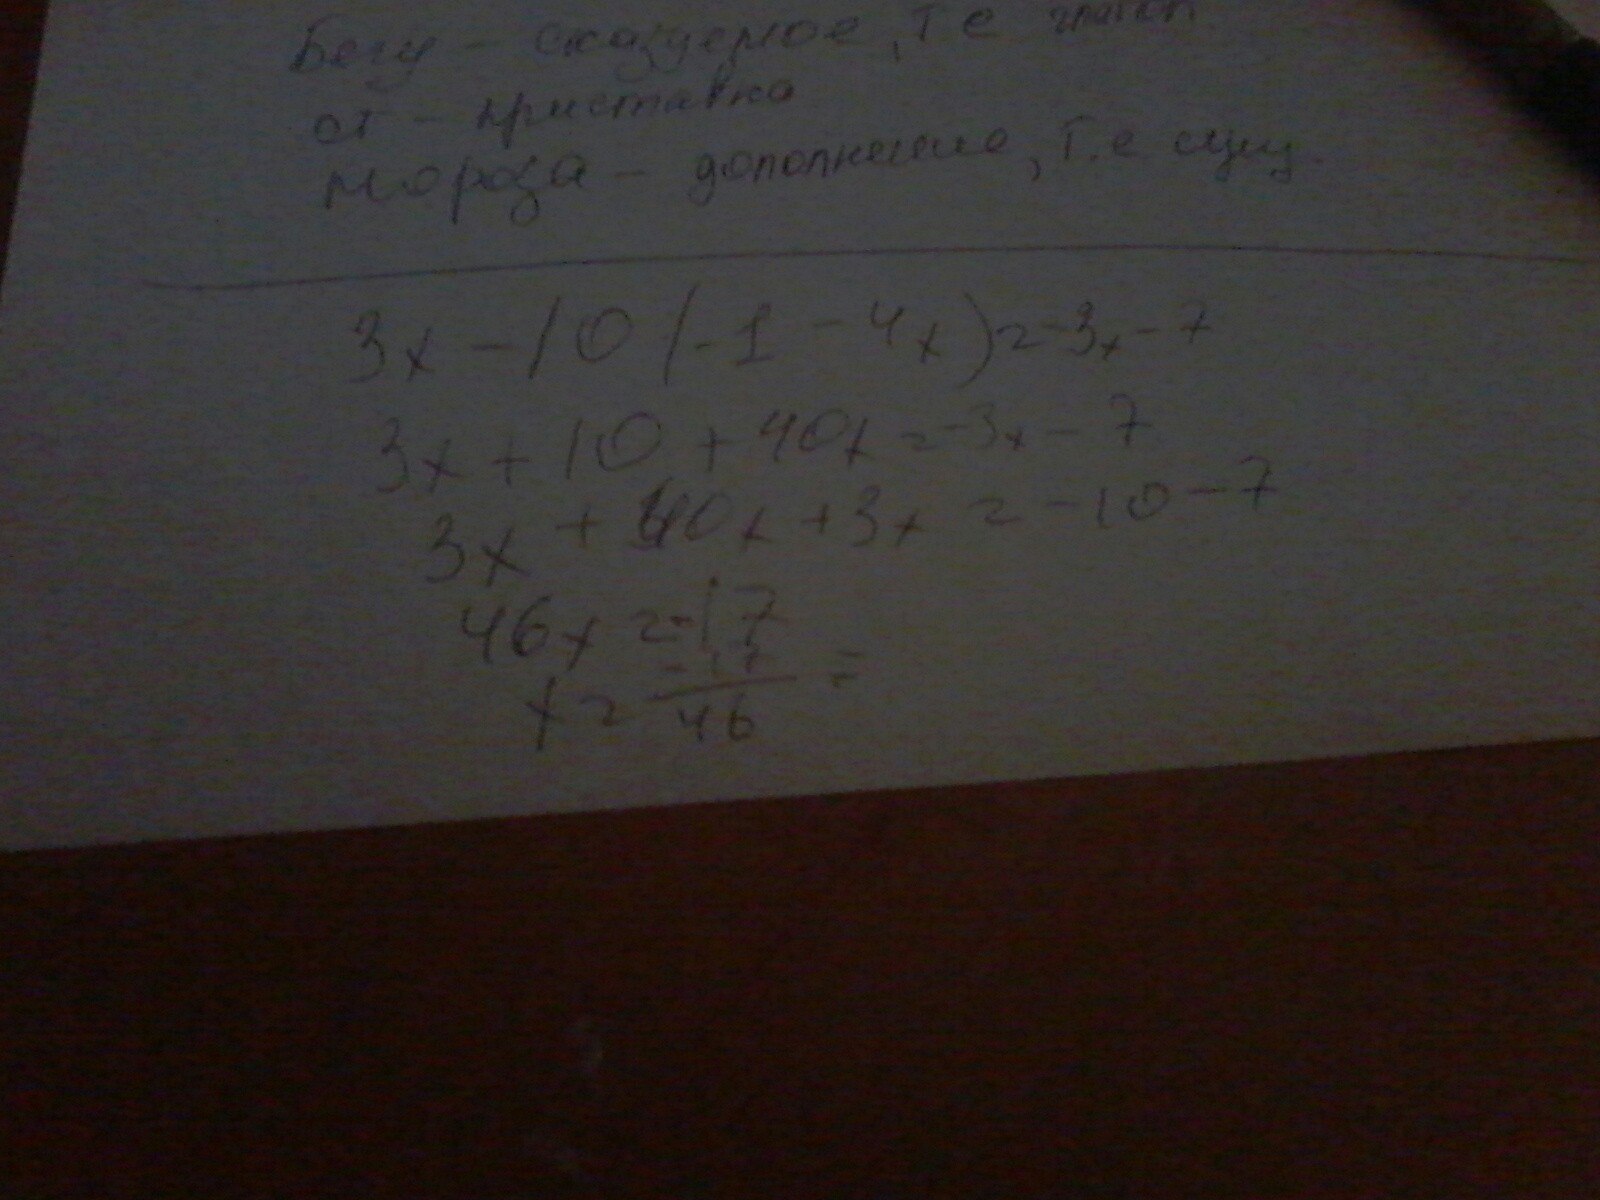 Бегу - сказуемое, т е глагол.
от - приставка
мороза - дополнение, т.е сущ.
3x - 10 (-1 - 4x) = -3x - 7
3x + 10 + 40x = -3x - 7
3x + 40x + 3x = -10 - 7
46x = -17
x = -17/46 =